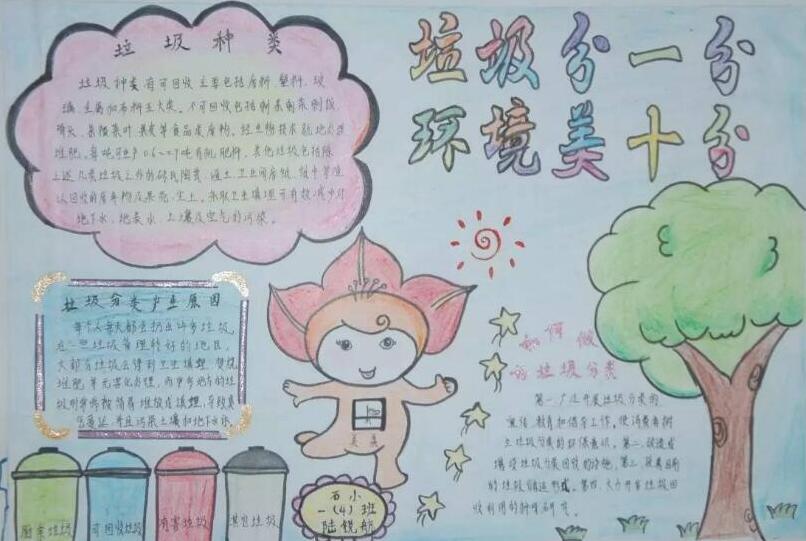 垃圾分一分
环境美十分
垃圾种类
垃圾种类有可回收主要包括废料、塑料、玻
璃、金属和布料五大类。不可回收包括剩菜剩饭、
骨头、菜根菜叶、果皮等食品类废物。经生物技术就地处理
堆肥,每吨可生产0.6~0.7吨有机肥料。其他垃圾包括除
上述几类垃圾之外的砖瓦陶瓷、渣土、卫生间废纸、纸巾等难
以回收的废弃物及果壳、尘土。采取卫生填埋可有效减少对
地下水、地表水、土壤及空气的污染。
垃圾分类产生原因
每个人每天都会扔出许多垃圾,
在一些垃圾管理较好的地区,
大部分垃圾会得到卫生填埋、焚烧、
堆肥等无害化处理,而更多地方的垃
圾则常常被简易堆放或填埋,导致臭
气蔓延,并且污染土壤和地下水体。
如何做
好垃圾分类
第一,广泛开展垃圾分类的
宣传、教育和倡导工作,使消费者树
立垃圾分类的环保意识。第二,改造或
增设垃圾分类回收的设施。第三,改善目前
的垃圾储运形式。第四,大力开展垃圾回
收利用的科学研究。
美美
厨余垃圾
可回收垃圾
有害垃圾
其它垃圾
石小
一(4)班
陆锐航